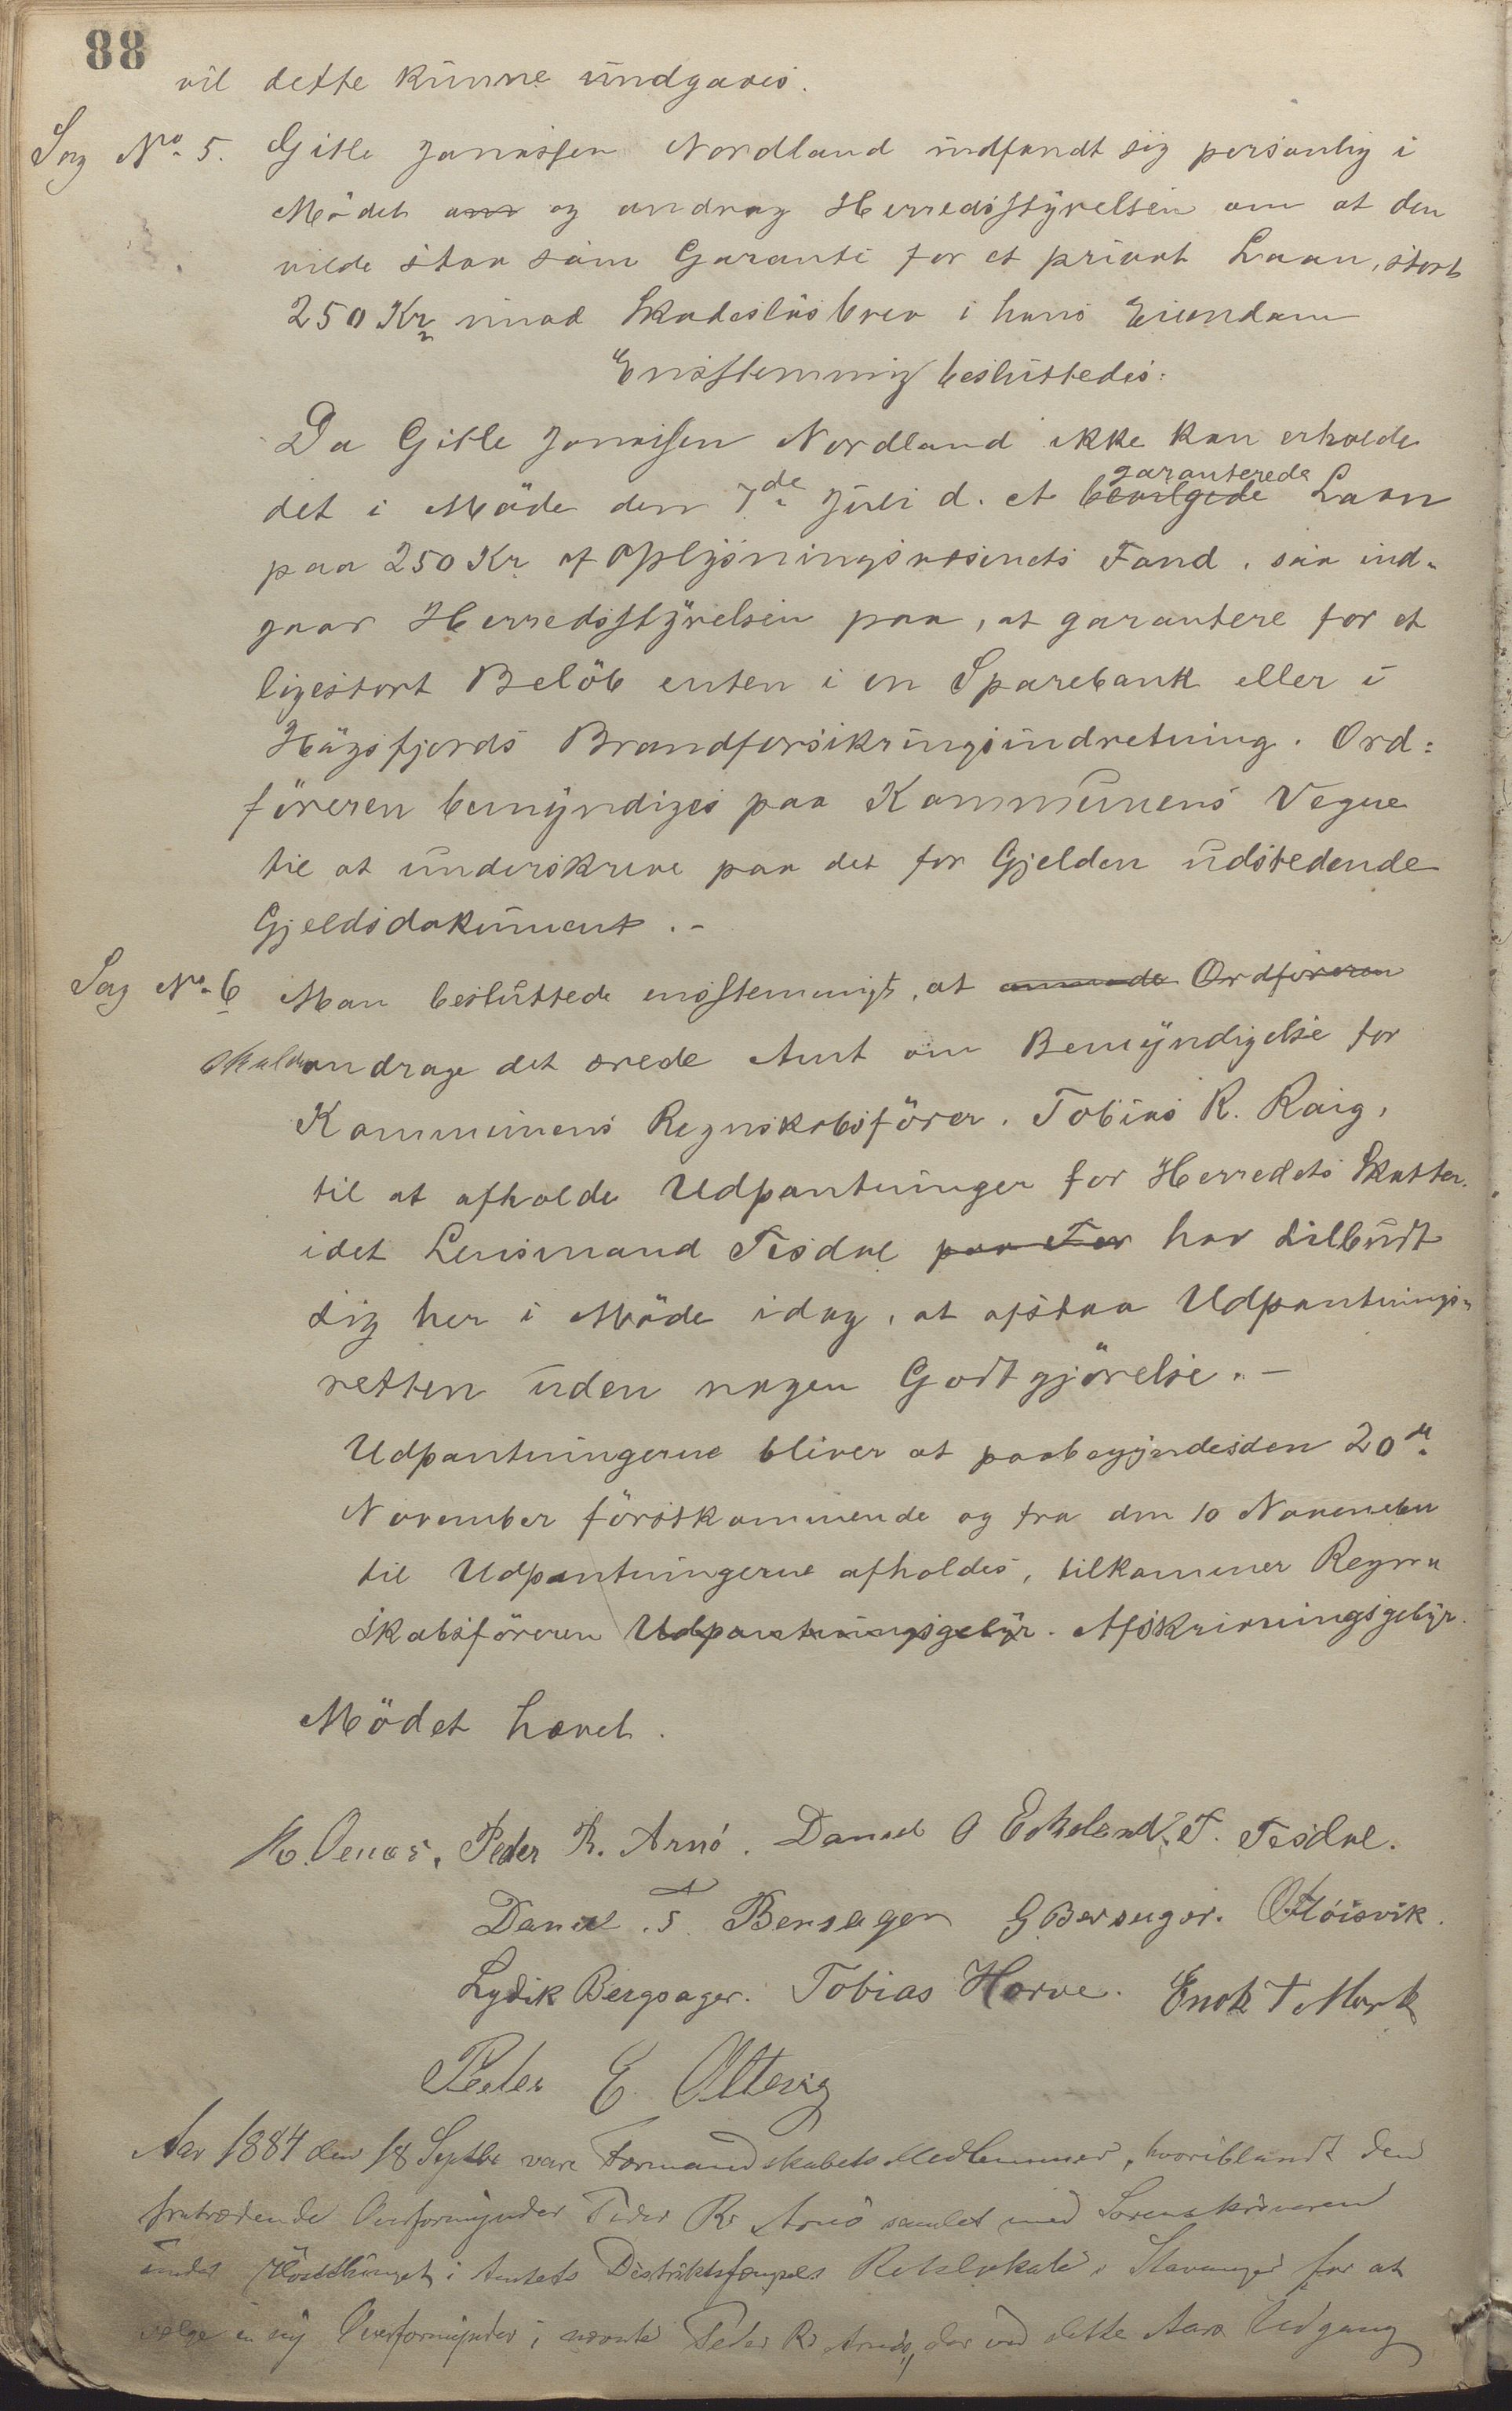 88
vil dette kunne undgaaes.
Sag No 5. Gitle Jonassen Nordland indfandt sig personlig i
Mödet om og androg Herredsstyrelsen om at den
vilde staa som Garanti for et privat Laan, stort
250 Kr imod Skadeslösbrev i hans Eiendom
Enstemmig besluttedes:
Da Gitle Jonassen Nordland ikke kan erholde
garanterede
det i Möde den 7de Juli d. A. bevilgede Laan
paa 250 Kr af Oplysningsvæsenets Fond, saa ind-
gaar Herredsstyrelsen paa, at garantere for et
ligestort Belöb enten i en Sparebank eller i
Högsfjords Brandforsikringsindretning. Ord:
föreren bemyndiges paa Kommunens Vegne
til at underskrive paa det for Gjelden udstedende
Gjeldsdokument.-
Sag No 6 Man besluttede enstemmigt, at anmode Ordföreren
skulde andrage det ærede Amt om Bemyndigelse for
Kommunens Regnskabsförer, Tobias R. Raig,
til at afholde Udpantninger for Herredets Skatter.
idet Lensmand Tisdal paa Ter har tilbudt
sig her i Möde idag, at afstaa Udpantnings-
retten uden nogen Godtgjörelse.-
Udpantningerne bliver at paabegyndes den 20de
November förstkommende og fra den 10 November
til Udpantningerne afholdes, tilkommer Regn-
skabsföreren Udpantningsgebyr. Afskrivningsgebyr.
Mödet hævet.
Peder R. Arnö. Daniel O Eikeland. T. Tisdal.
Daniel . T Bersager G Bersager. O Höisvik.
Lydik Bergsager. Tobias Horve. Enok T Mork
Peder E. Oltevig
Aar 1884 den 18 Septbr vare Formandskabets Medlemmer, hvoriblandt den
fratrædende Overformynder Peder Rs Arnö samlet med Sorenskriveren
under Hösttinget i Amtets Distriktsfængsels Retslokale i Stavanger for at
vælge en ny Overformynder i nævnte Peder Rs Arnös, der ved dette Aars Udgang